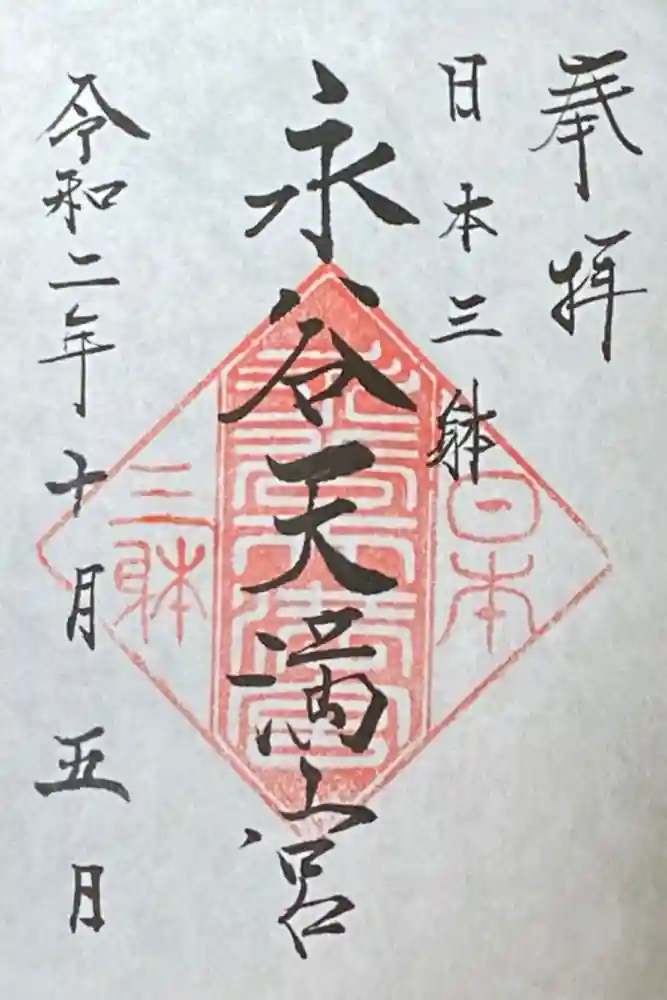 奉拝
日本三躰
永谷天満宮
令和二年十月五日
日本
永谷天満宮
三躰